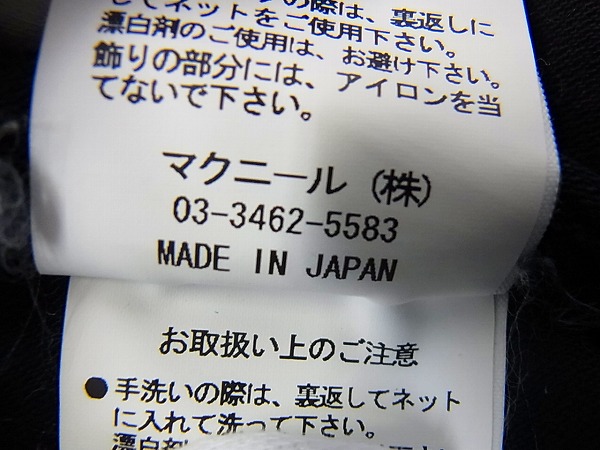 の際は、裏返しに
してネットをご使用下さい。
漂白剤のご使用は、お避け下さい。
飾りの部分には、アイロンを当
てないで下さい。
マクニール（株）
03-3462-5583
MADE IN JAPAN
お取扱い上のご注意
●手洗いの際は、裏返してネット
に入れて洗って下さい。
漂白剤